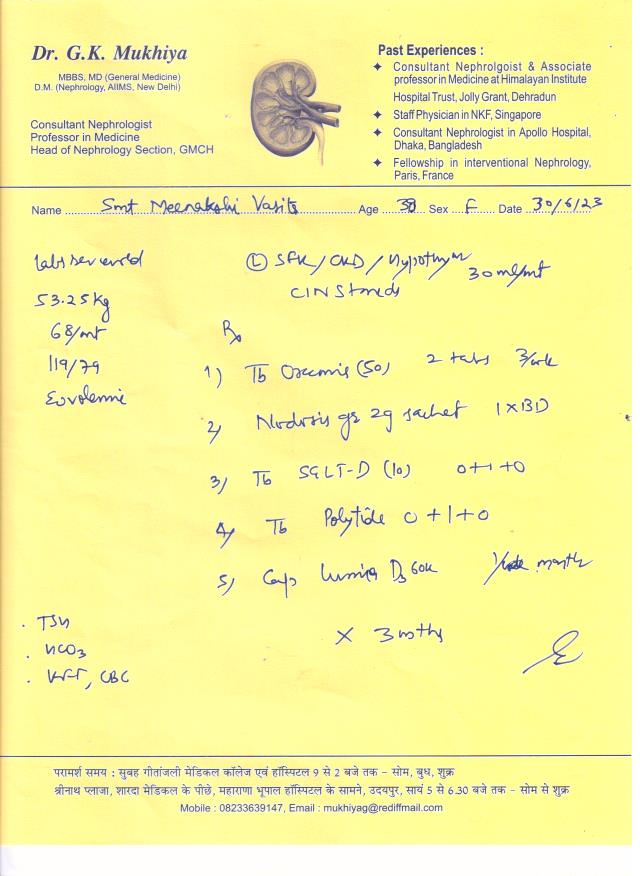 Dr. G.K. Mukhiya
MBBS, MD (General Medicine)
D.M. (Nephrology, AIIMS, New Delhi)
Consultant Nephrologist
Professor in Medicine
Head of Nephrology Section, GMCH
Past Experiences :
Consultant Nephrolgoist & Associate
professor in Medicine at Himalayan Institute
Hospital Trust, Jolly Grant, Dehradun
Staff Physician in NKF, Singapore
Consultant Nephrologist in Apollo Hospital,
Dhaka, Bangladesh
Fellowship in interventional Nephrology,
Paris, France
Name Smt Meenakshi Age 38 Sex F Date 30/6/23
Labs reviewed
53.25 kg
68/mt
119/79
Euvolemic
(L) SFK / CKD / Hypothyr 30 ml/mt
CIN
Rx
1) Tb (50) 2 tabs 3/wk
2) Nodosis gr 2g sachet 1 x BD
3) Tb SGLT-D (10) 0+1+0
4) Tb 0+1+0
5) Cap D3 60k 1/ month
x 3 mths
. TSH
. HCO3
. KFT, CBC
परामर्श समय : सुबह गीतांजली मेडिकल कॉलेज एवं हॉस्पिटल 9 से 2 बजे तक – सोम, बुध, शुक्र
श्रीनाथ प्लाजा, शारदा मेडिकल के पीछे, महाराणा भूपाल हॉस्पिटल के सामने, उदयपुर, सायं 5 से 6.30 बजे तक – सोम से शुक्र
Mobile : 08233639147, Email : mukhiyag@rediffmail.com